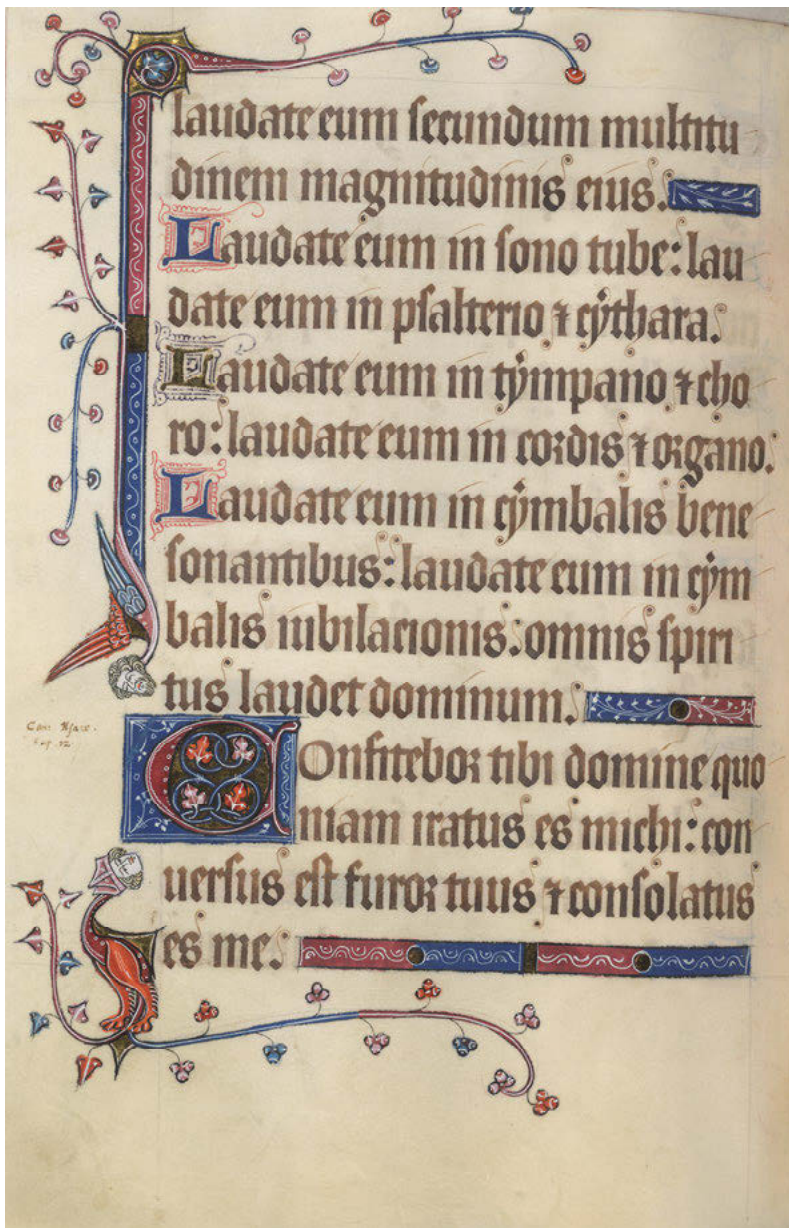 laudate eum secundum multitu
dinem magnitudinis eius.
Laudate eum in sono tube: lau
date eum in psalterio ⁊ cythara.
Laudate eum in tympano ⁊ cho
ro: laudate eum in cordis ⁊ organo.
Laudate eum in cymbalis bene
sonantibus: laudate eum in cym
balis iubilacionis. omnis spiri
tus laudet dominum.
Confitebor tibi domine quo
niam iratus es michi: con
uersus est furor tuus ⁊ consolatus
es me.